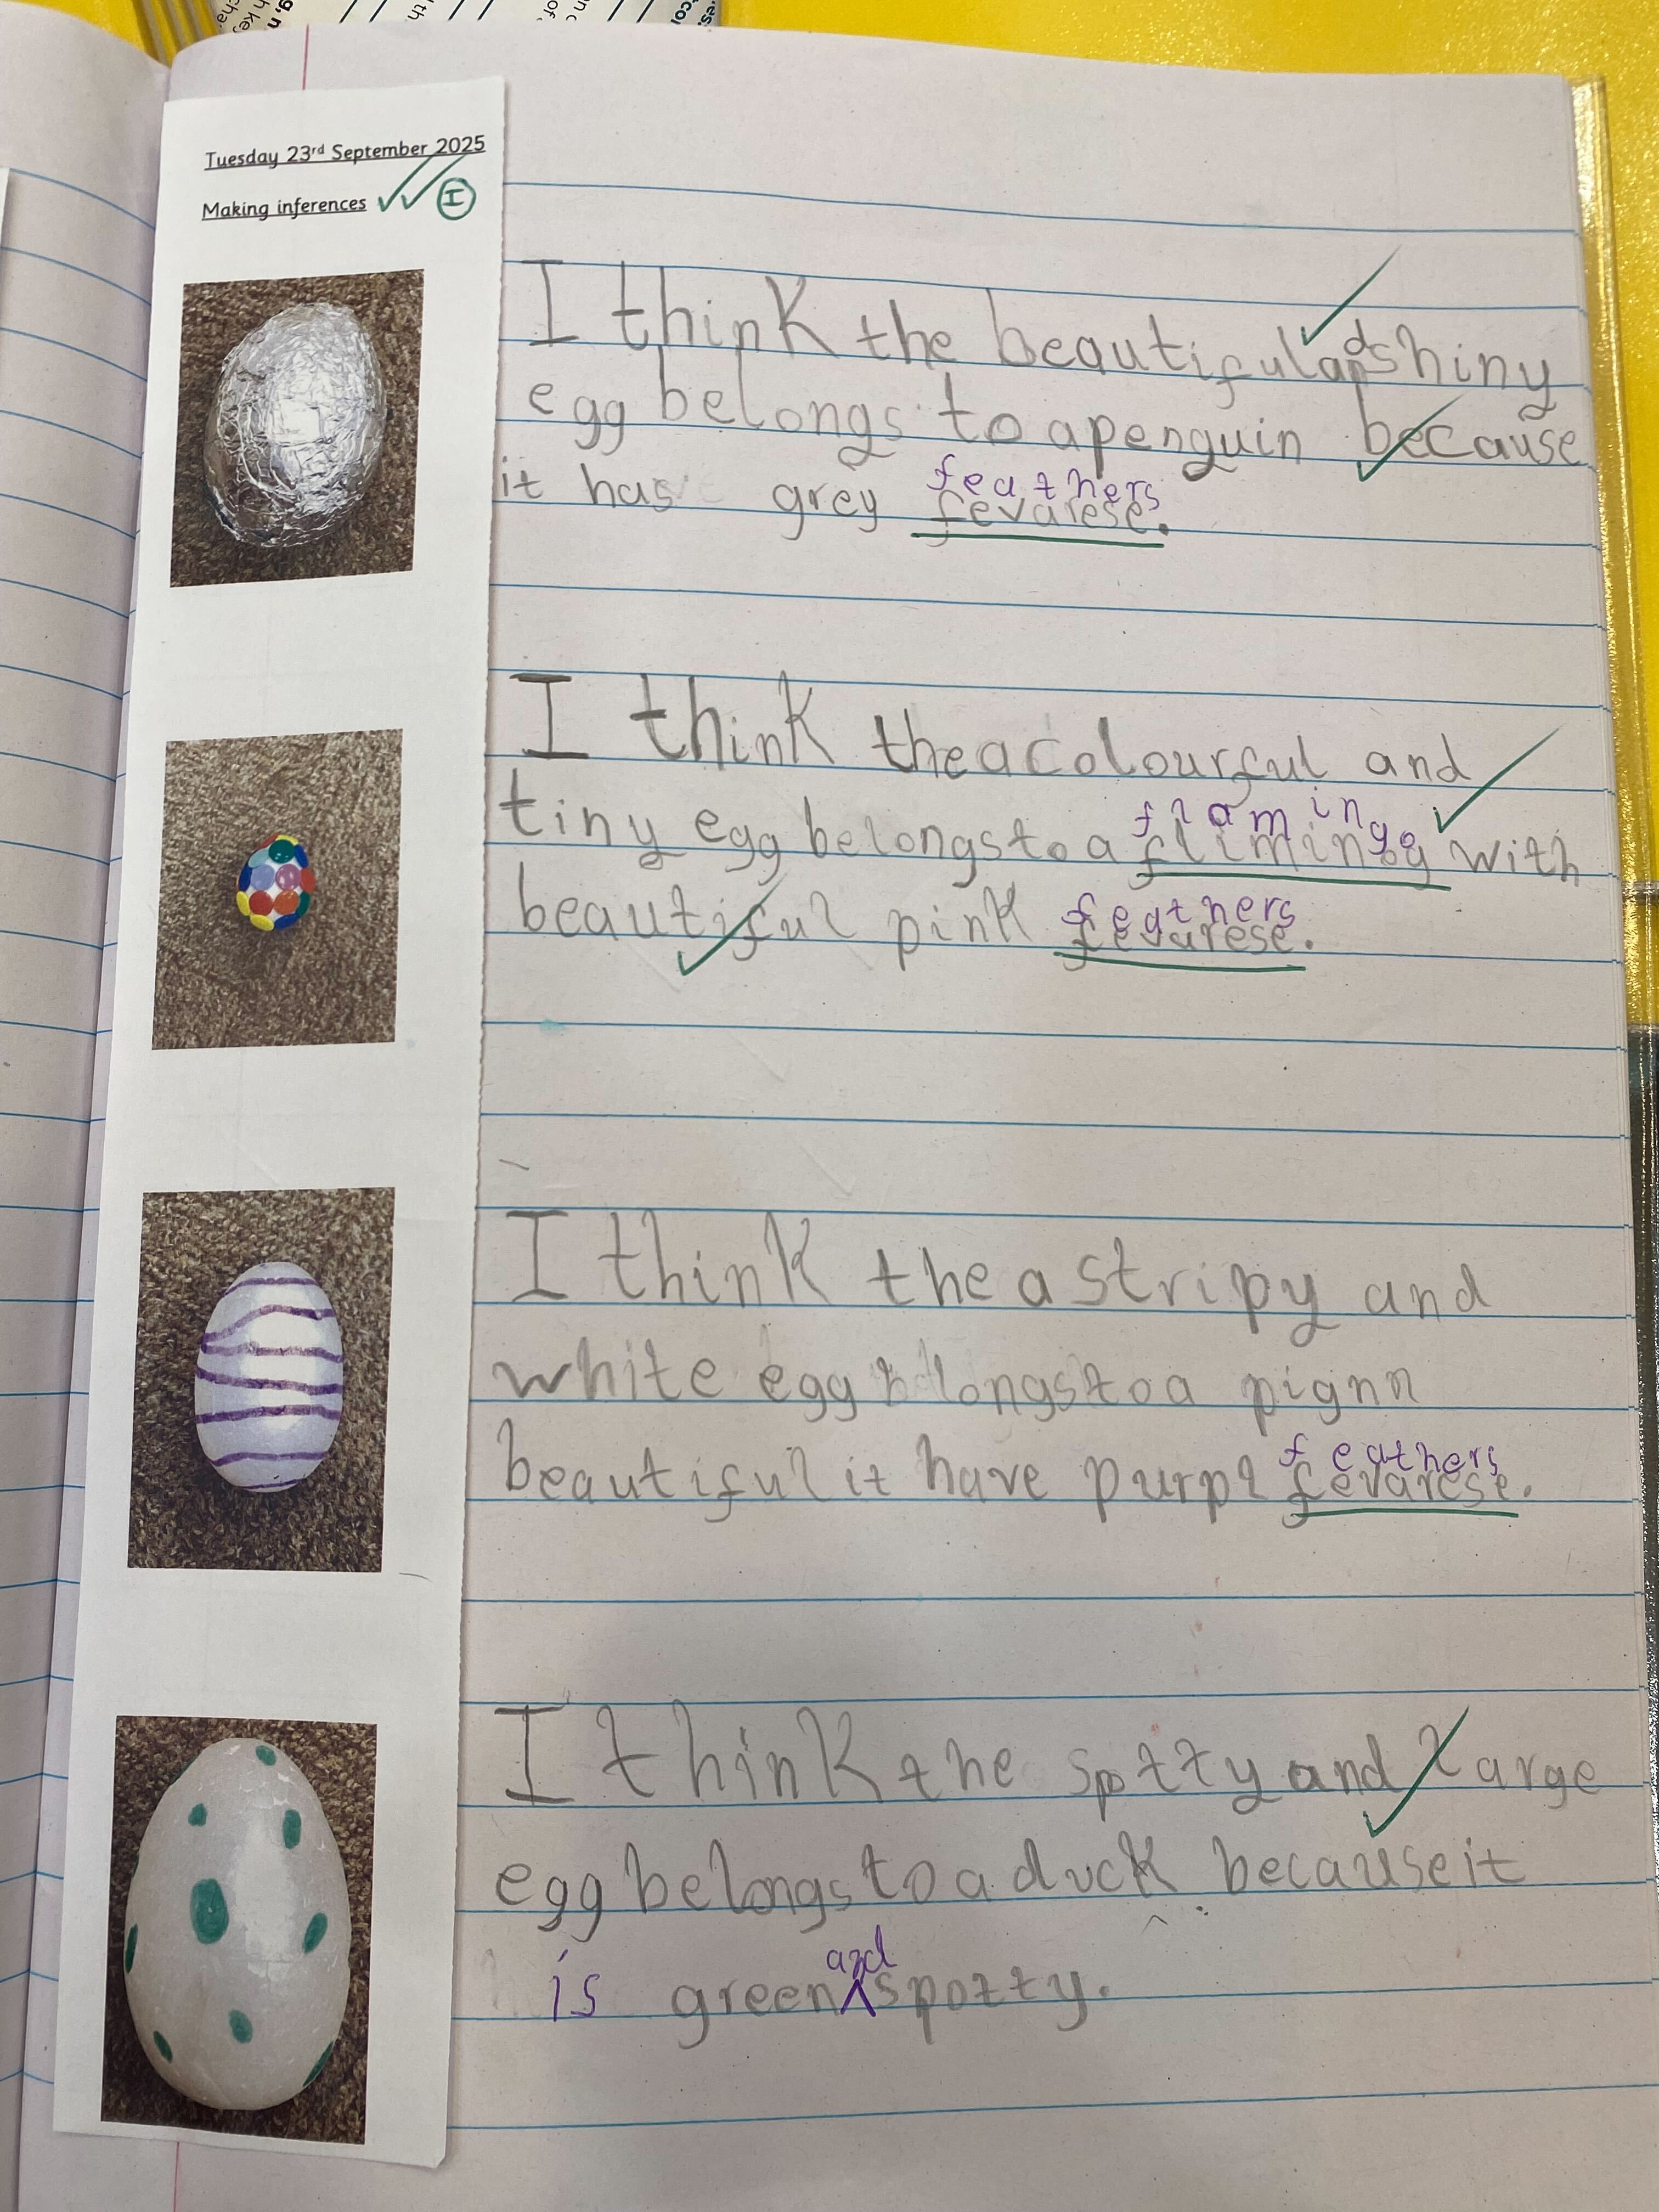 Tuesday 23rd September 2025
Making inferences
I
I think the beautiful and shiny
egg belongs to a penguin because
it has grey feathers
fevarese.
I think the a colourful and
flamingo
tiny egg belongs to a flimingog with
beautiful pink feathers
fevarese.
I think the a stripy and
white egg blongs to a pignn
feathers
beautiful it have purpl fevarese.
I think the spotty and large
egg belongs to a duck because it
and
is green spotty.